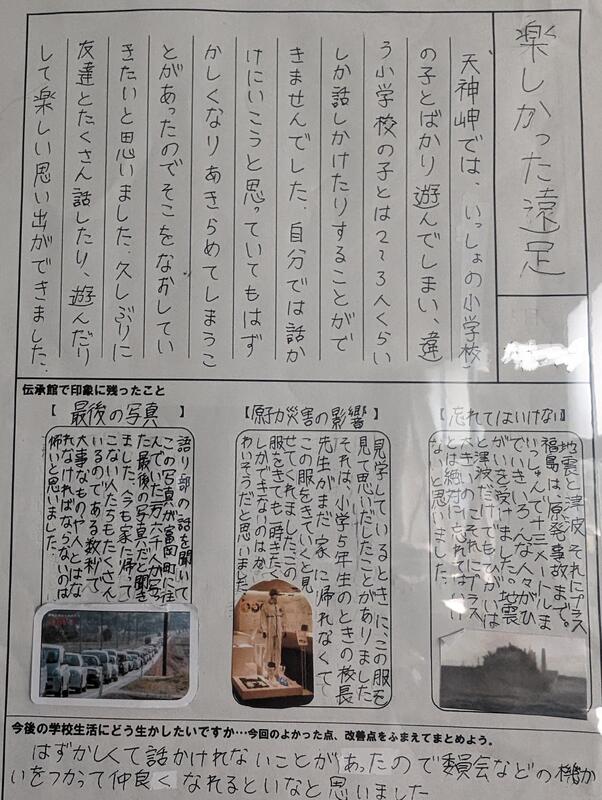 楽しかった遠足
天神岬では、いっしょの小学校
の子とばかり遊んでしまい、違
う小学校の子とは2~3人くらい
しか話しかけたりすることがで
きませんでした。自分では話か
けにいこうと思っていてもはず
かしくなりあきらめてしまうこ
とがあったのでそこをなおしてい
きたいと思いました。久しぶりに
友達とたくさん話したり、遊んだり
して楽しい思い出ができました。
伝承館で印象に残ったこと
【忘れてはいけない】
地震と津波それにプラス
福島は、原発事故まで。
いっしゅんで十三メートルま
でいきいろんな人々がひ
がいを受けました。地震
と津波だけでもひがいは
大きいのにそれにプラス
とは絶対に忘れてはいけ
ないと思いました。
【原子力災害の影響】
見学しているときに、この服を
見て思いだしたことがありました
それは、小学5年生のときの校長
先生がまだ家に帰れなくて
この服をきていくと見
せてくれました。この
服をきても一時きたく
しかできないのはか
わいそうだと思いました
【最後の写真】
語り部の話を聞いて
この写真が富岡町に住
んでいた一万六千人が写っ
た最後の写真だと聞き
ました。今も家に帰って
こない人たちもたくさん
いるのである数利で
大事なものや人とはな
れなければならないのは
怖いと思いました。
今後の学校生活にどう生かしたいですか…今回のよかった点、改善点をふまえてまとめよう。
はずかしくて話かけれないことがあったので委員会などの機か
いをつかって仲良くなれるといなと思いました